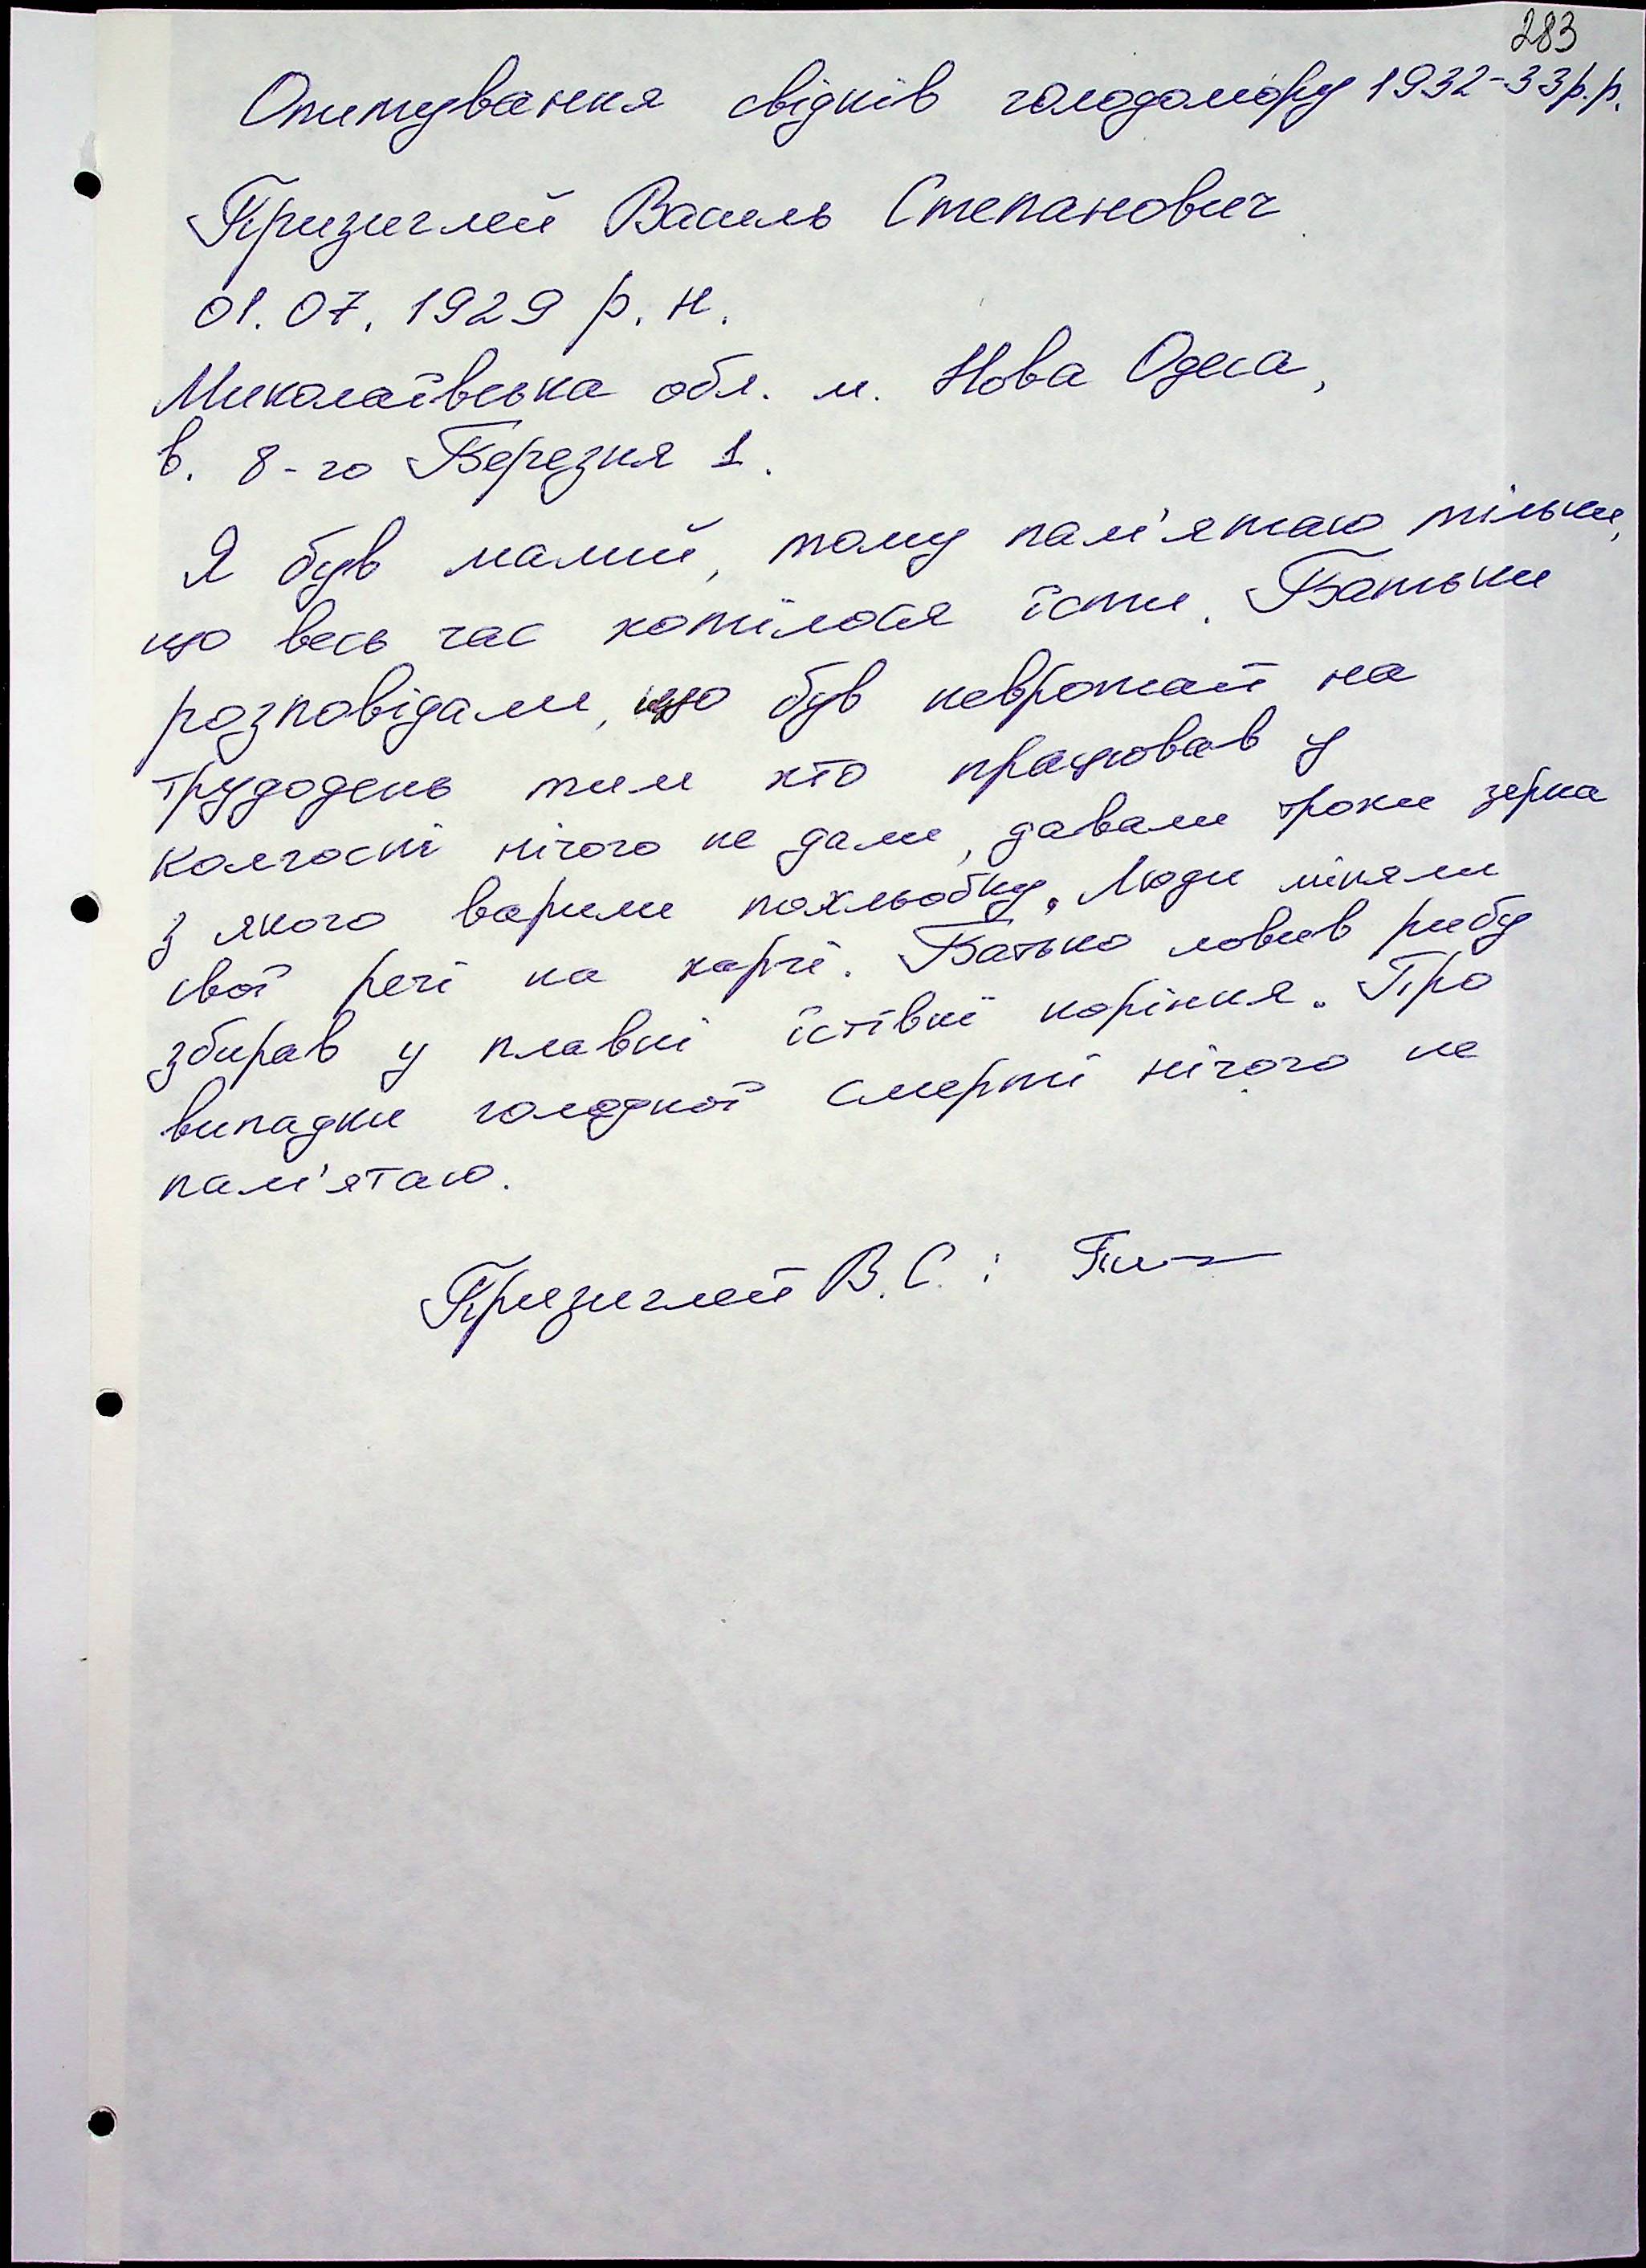 283
Опитування свідків голодомору 1932-33р.р.
Призиглей Василь Степанович
01.07.1929 р.н.
Миколаївська обл. м. Нова Одеса,
в. 8-го Березня 1.
Я був малий, тому пам'ятаю тільки,
що весь час хотілося їсти. Батьки
розповідали, що був неврожай на
трудодень тим хто працював у
колгоспі нічого не дали, давали трохи зерна
з якого варили похльобку. Люди міняли
свої речі на харчі. Батько ловив рибу
збирав у плавні їстівні коріння. Про
випадки голодної смерті нічого не
пам'ятаю.
Призиглей В.С.: